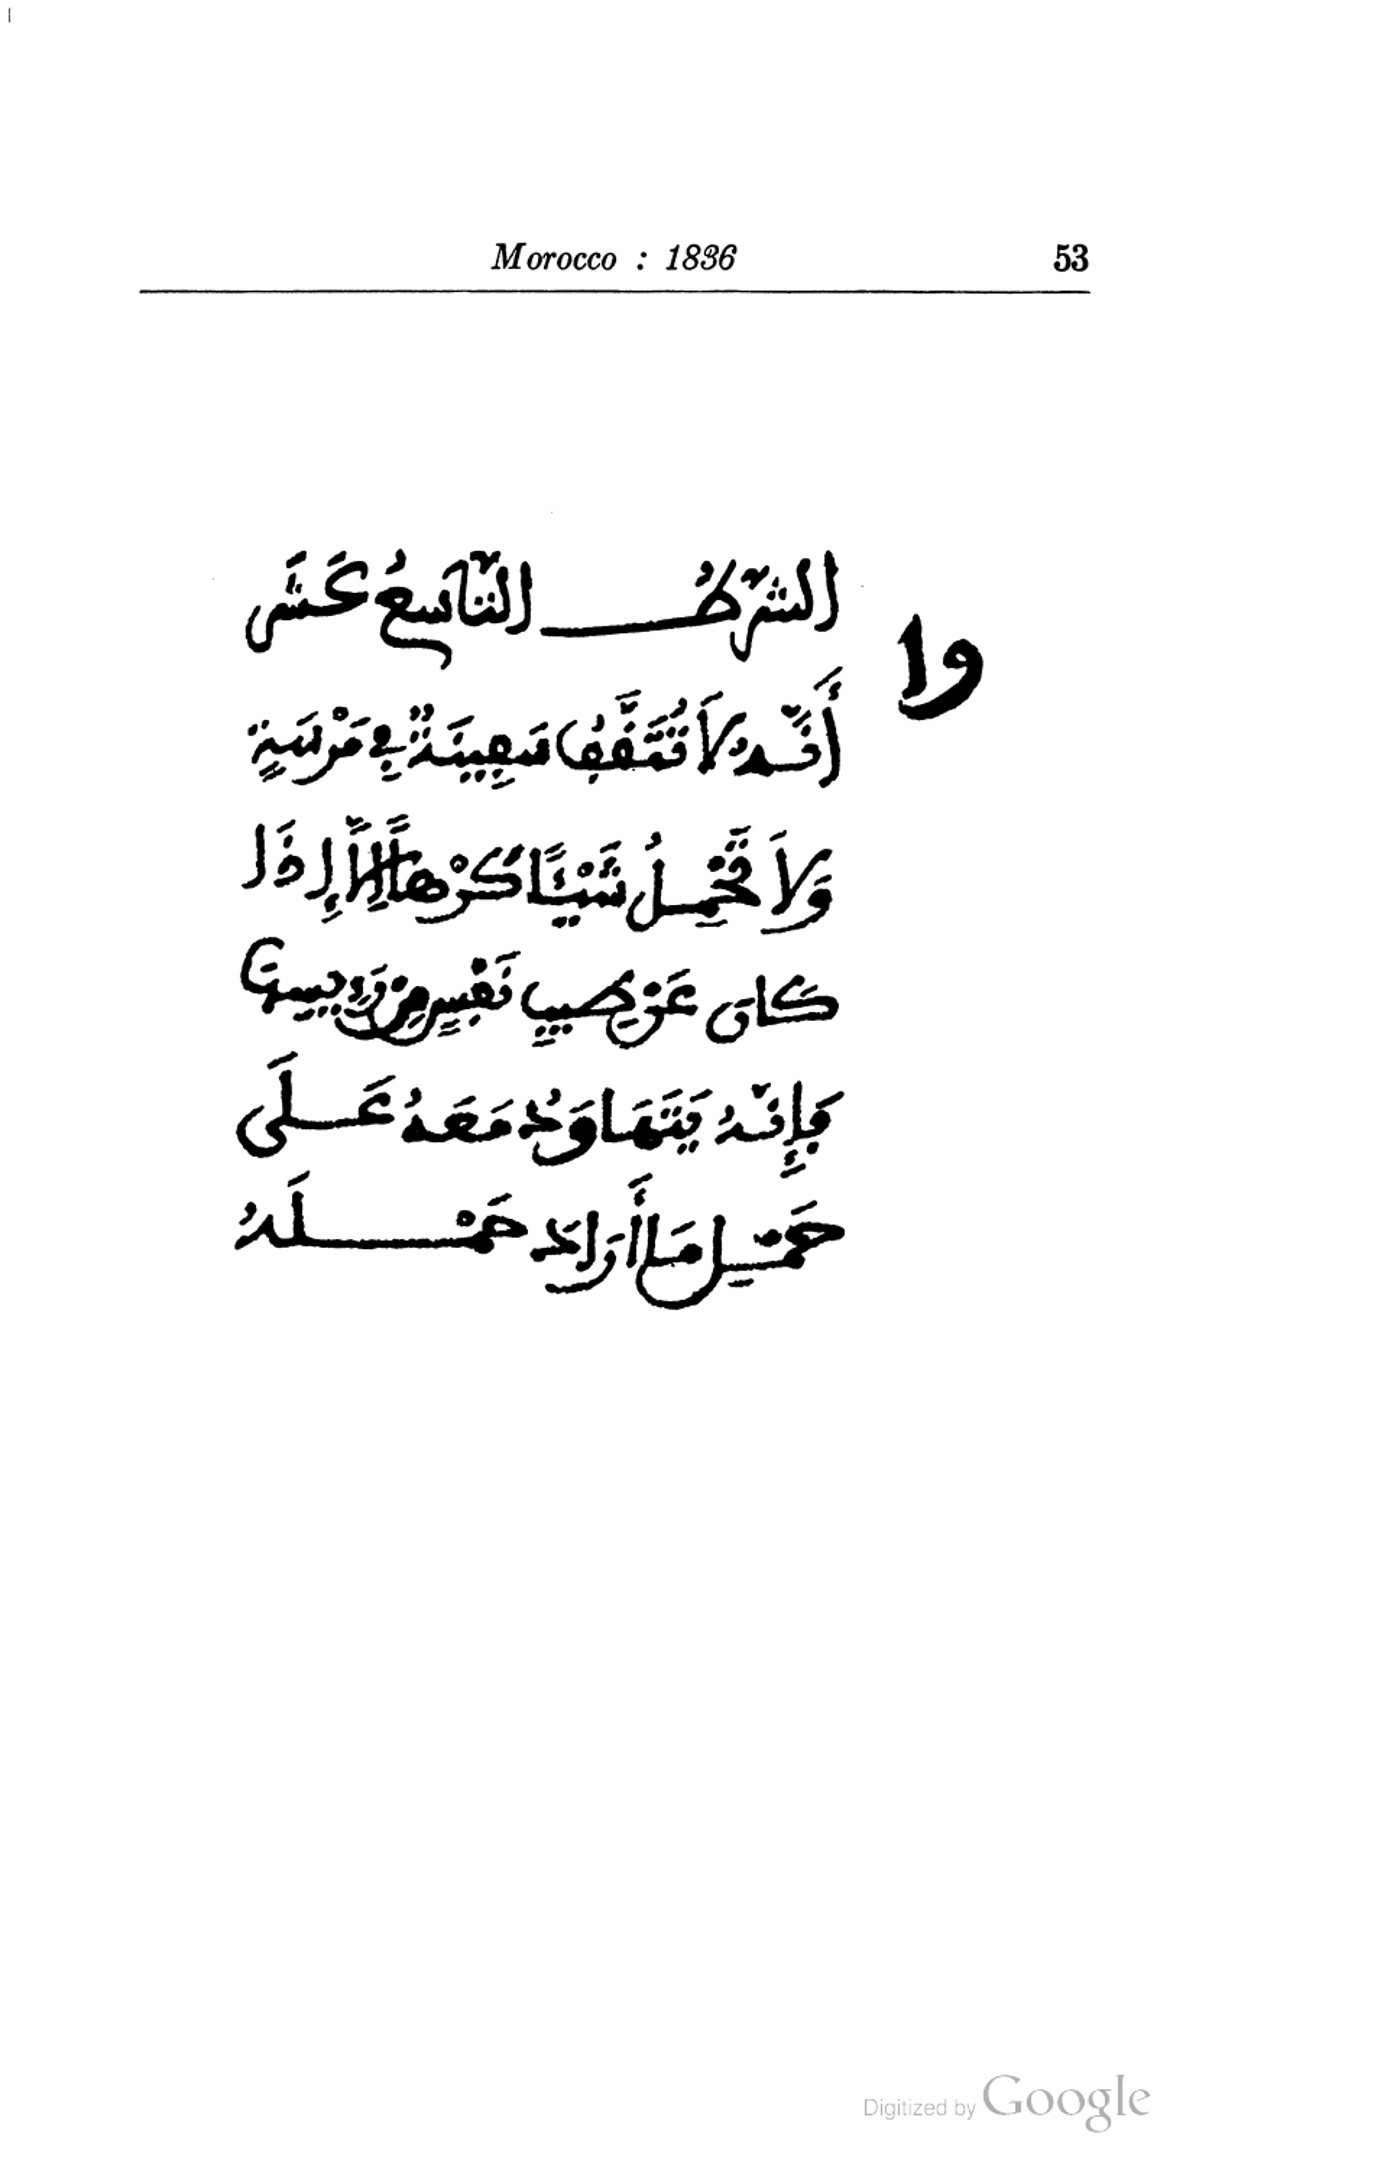 Morocco : 1836 53
وا
الشَّرْطُ التَّاسِعُ عَشَرَ
أَنَّهُ لَا تُثَقَّفُ سَفِينَةٌ فِي مَرْسَيةٍ
وَلَا تَحْمِلُ شَيْئًا كَرْهًا إِلَّا إِذَا
كَانَ عَنْ طِيبِ نَفْسٍ مِنْ رَيِيسِهَا
فَإِنَّهُ يَتَهَاوَدُ مَعَهُ عَلَى
حَمْلِ مَا أَرَادَ حَمْلَهُ
Digitized by Google